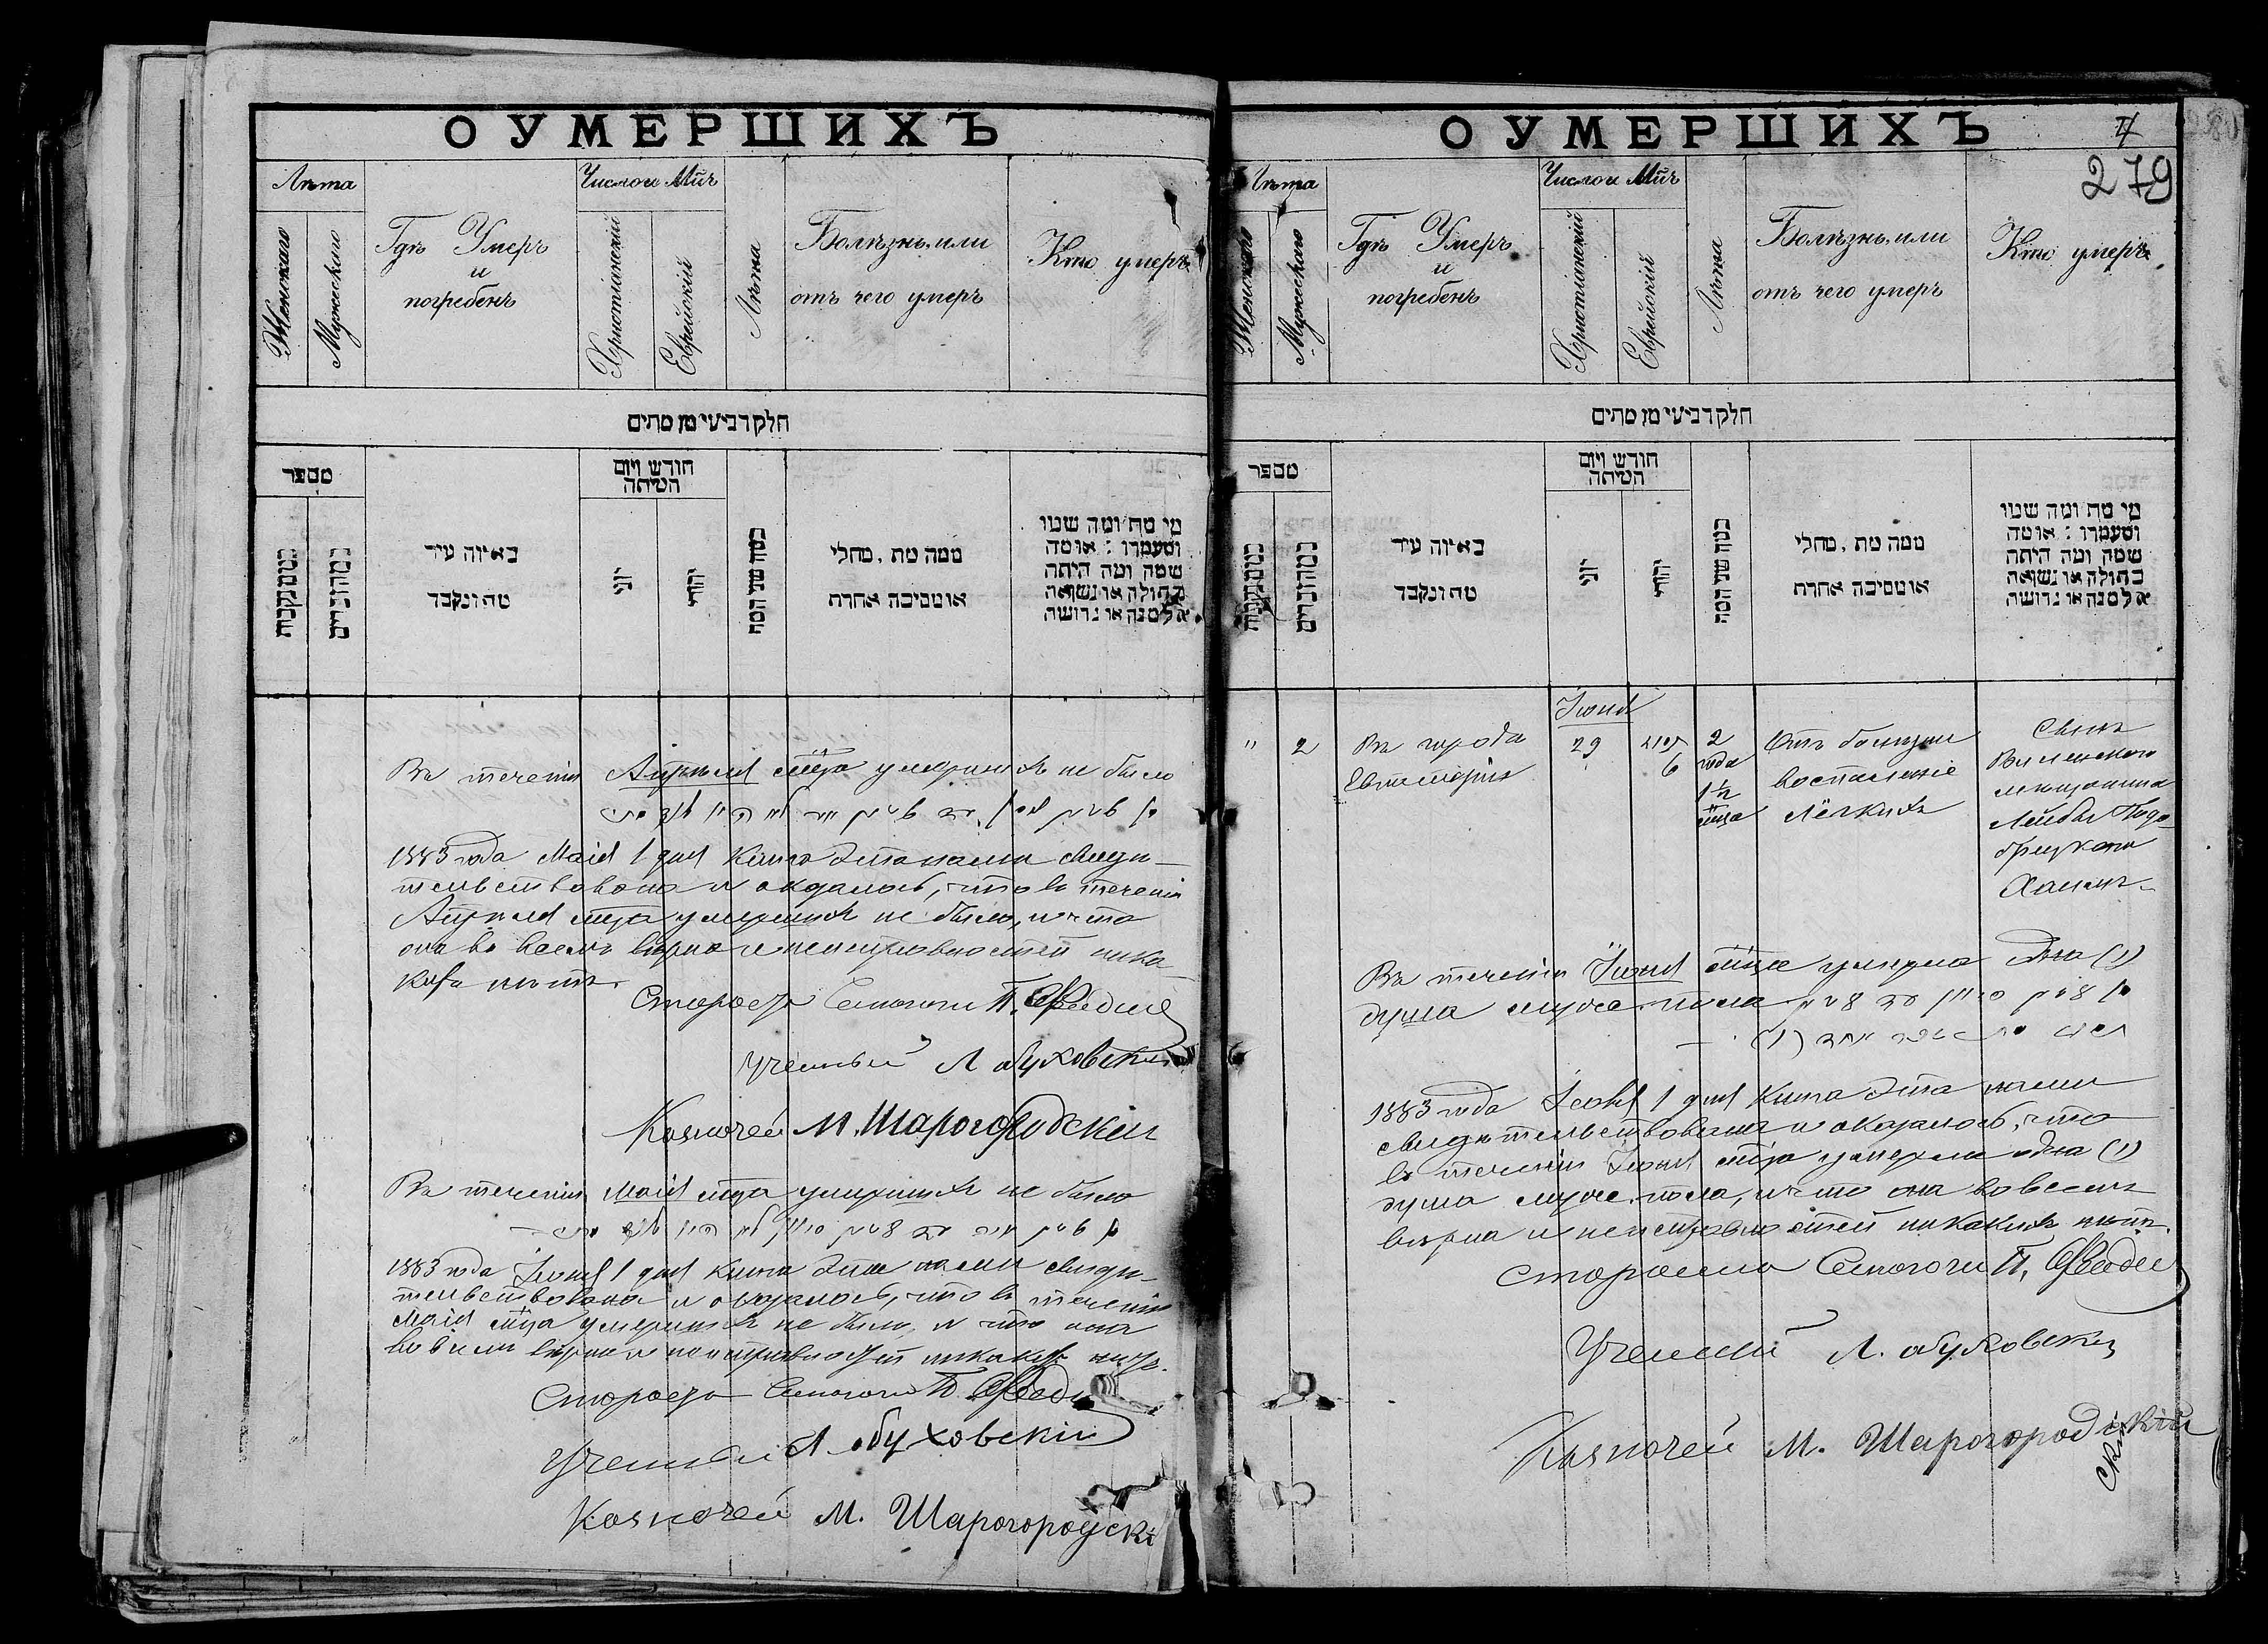 О УМЕРШИХЪ
Лѣта
Женскаго
Мужескаго
Гдѣ Умеръ
и
погребенъ
Число и Мѣс
Христіанскій
Еврейскій
Лѣта
Болѣзнь, или
отъ чего умеръ
Кто умеръ
חלק רביעי מן מתים
מספר
באיזה עיר
מת ונקבר
חודש ויום
המיתה
יוני
יהודי
כמה שני המת
ממה מת, מחלי
או מסיבה אחרת
מי מת ומה שמו
ומעמדו : או מה
שמה ומה היתה
בתולה או נשואה
אלמנה או גרושה
Въ теченіи Апрѣля мѣца умершихъ не было
1883 года Маія 1 дня книга эта нами свидѣ-
тельствована и оказалось, что въ теченіи
Апрѣля мѣца умершихъ не было, и что
она во всемъ вѣрна и неисправностей ника-
кихъ нѣтъ.
Староста Синагоги П.
Ученый Л Обуховскій
Казначей М. Шарогородскій
Въ теченіи Маія мѣца умершихъ не было
1883 года Іюня 1 дня книга эта нами свидѣ-
тельствована и оказалось, что въ теченіи
Маія мѣца умершихъ не было, и что она
во всемъ вѣрна и неисправностей никакихъ нѣтъ.
Староста Синагоги П.
Ученый Л. Обуховскій
Казначей М. Шарогородскі
О УМЕРШИХЪ
279
Лѣта
Женскаго
Мужескаго
Гдѣ Умеръ
и
погребенъ
Число и Мѣс
Христіанскій
Еврейскій
Лѣта
Болѣзнь, или
отъ чего умеръ
Кто умеръ
חלק רביעי מן מתים
מספר
באיזה עיר
מת ונקבר
חודש ויום
המיתה
יוני
יהודי
כמה שני המת
ממה מת, מחלי
או מסיבה אחרת
מי מת ומה שמו
ומעמדו : או מה
שמה ומה היתה
בתולה או נשואה
אלמנה או גרושה
Іюня
" 2
Въ городѣ
Евпаторіи
29
6
2
года
1½
мѣца
Отъ болѣзни
воспаленіе
лёгкихъ
Сынъ
Виленскаго
мѣщанина
Лейбы Подо-
Хаимъ
Въ теченіи Іюня мѣца умерла одна (1)
душа муже. пола
(1)
1883 года Іюля 1 дня книга эта нами
свидѣтельствована и оказалось, что
въ теченіи Іюня мѣца умерла одна (1)
душа муже. пола, и что она во всемъ
вѣрна и неисправностей никакихъ нѣтъ.
Староста Синагоги П.
Ученый Л. Обуховскій
Казначей М. Шарогородскій
ский